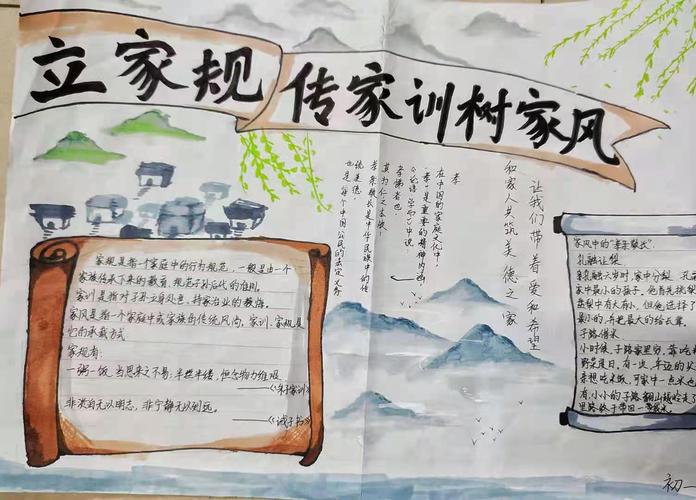 立家规 传家训树家风
家规是指一个家庭中的行为规范，一般是由一个
家族传承下来的教育，规范子孙后代的准则。
家训是指对子孙立身处世、持家治业的教诲。
家风是指一个家庭中或家族的传统风尚，家训、家规是
它的承载方式
家规有：
一粥一饭，当思来之不易；半丝半缕，恒念物力维艰
——《朱子家训》
非淡泊无以明志，非宁静无以致远。
——《诫子书》
孝
在中国的家庭文化中，
“孝”是重要的精神内涵
《论语·学而》中说
孝悌者也，
其为仁之本欤！
孝亲敬长是中华民族中的传
统美德，
也是每个中国公民的法定义务
让我们带着爱和希望
和家人共筑美德之家
家风中的“孝亲敬长”
孔融让梨
融六岁时，家中分梨，孔
家中最小的孩子，他首先挑梨
梨中有大有小，但他选择了
最小的，并把最大的给长辈。
子路借米
小时候，子路家里穷，靠吃
野菜度日，有一次，年迈的父
想吃米饭，可家中一点米
有，小小的子路翻山越岭走了
里路，终于带回一
初一